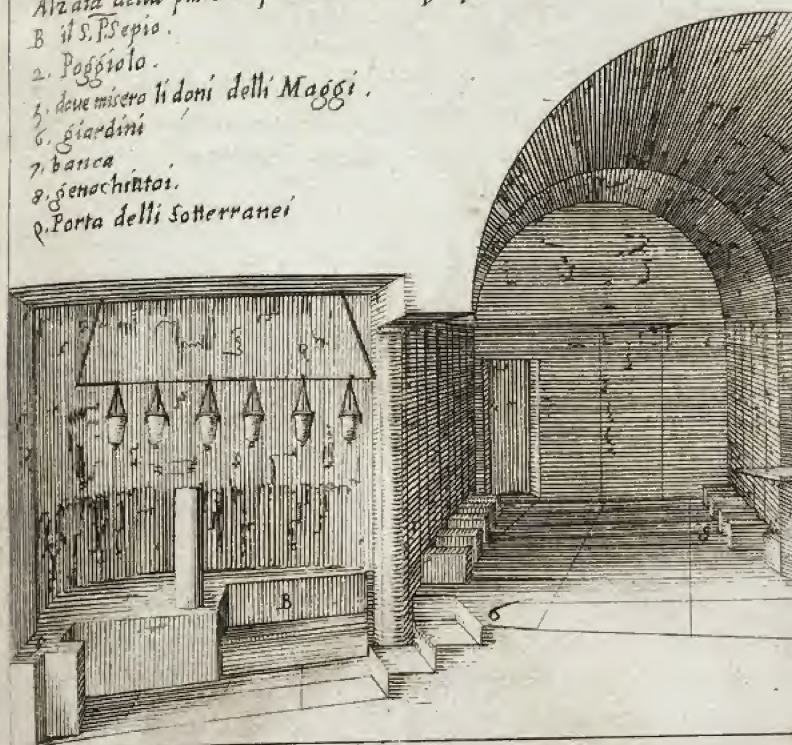 Alzata della
B il S.P.Sepio.
2. Poggiolo.
5. doue misero li doni delli Maggi.
6. giardini
7. banca
8. genochiatoi.
9. Porta delli Sotterranei
B
6
8